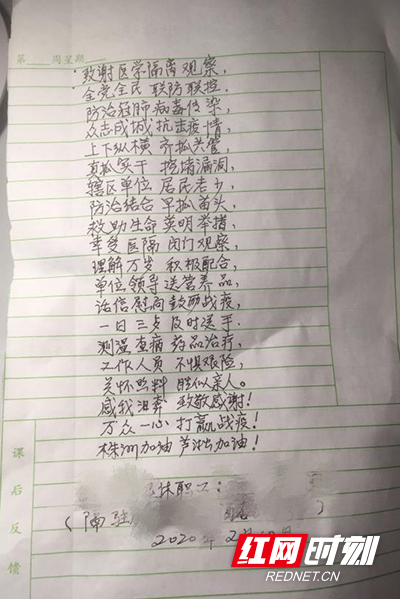 第 周星期
致谢医学隔离观察，
全党全民 联防联控，
防治冠肺病毒传染，
众志成城抗击疫情，
上下纵横 齐抓共管，
真抓实干 挖堵漏洞，
辖区单位 居民老少，
防治结合 早抓苗头，
救助生命 英明举措，
幸受医隔 闭门观察，
理解万岁 积极配合，
单位领导 送营养品，
话信慰问 鼓励战疫，
一日三餐 及时送手，
测温查病 药品治疗，
工作人员 不惧艰险，
关怀照料 胜似亲人。
感我泪奔 致敬感谢！
万众一心 打赢战疫！
株洲加油 芦淞加油！
休职工：
2020年2月
课后反馈
红网时刻
REDNET.CN